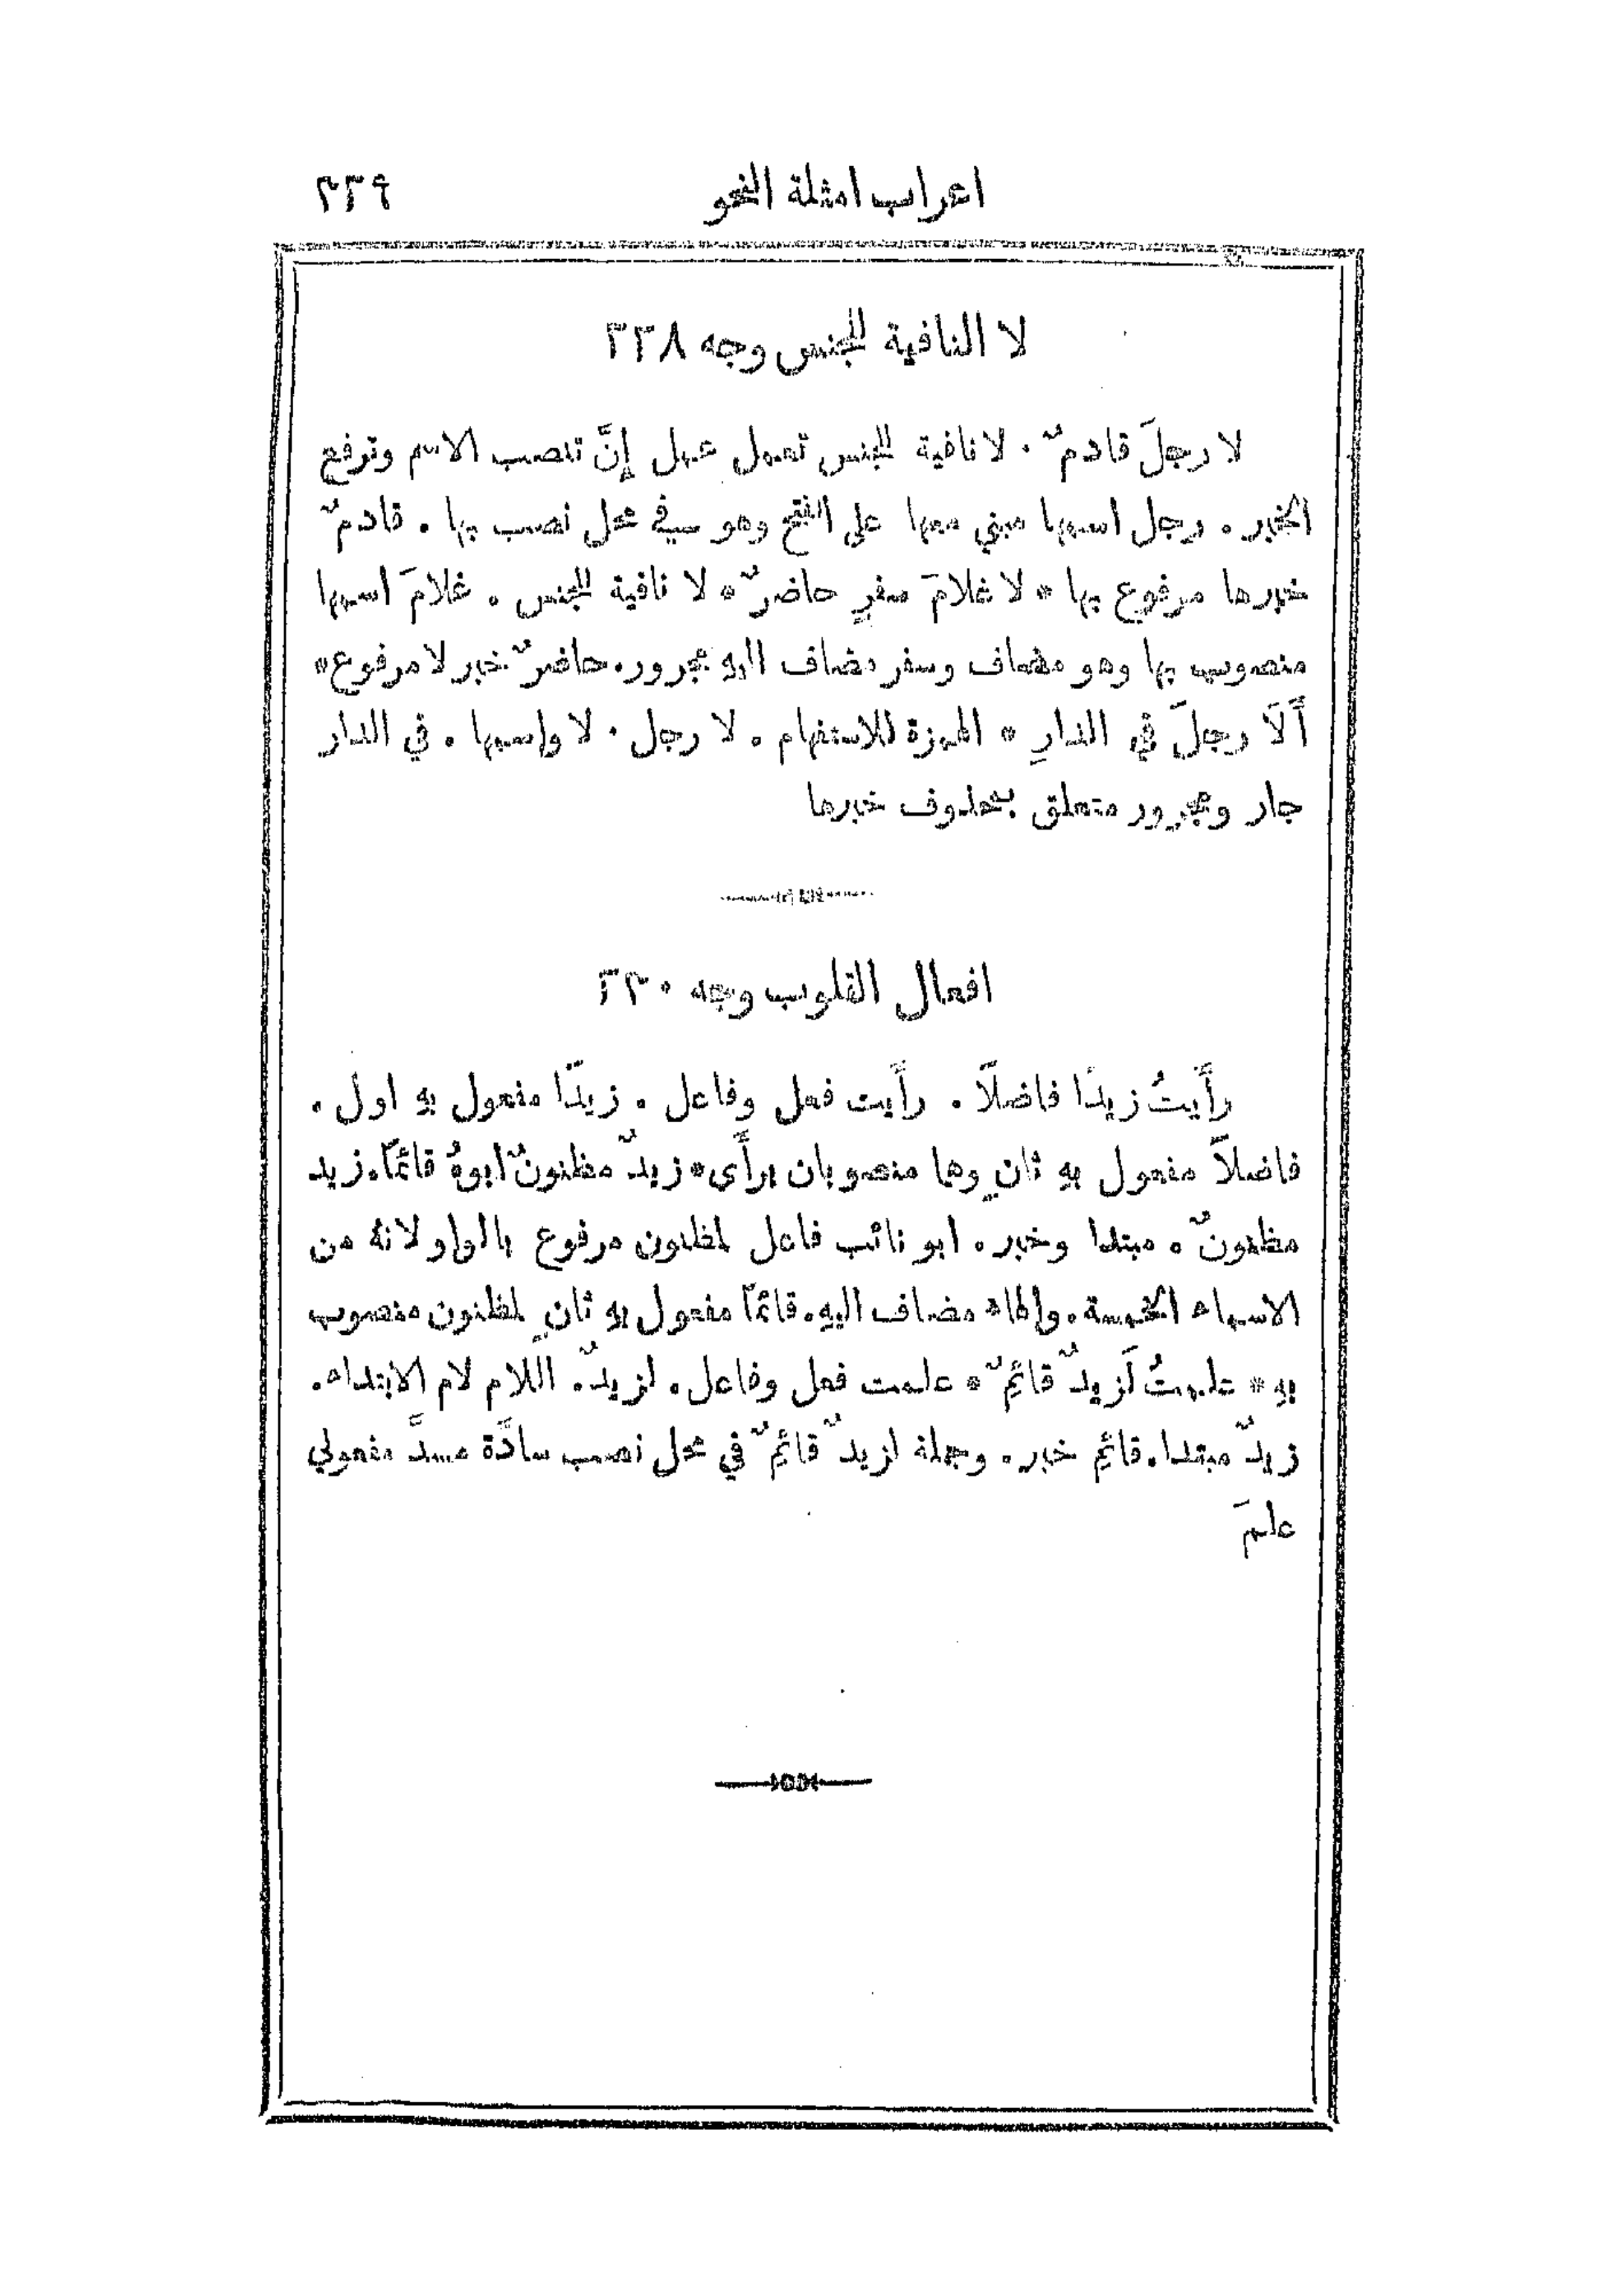 اعراب امثلة النحو ٣٣٩
لا النافية للجنس وجه ٢٢٨
لا رجلَ قادمٌ · لا نافية للجنس تعمل عمل إنَّ تنصب الاسم وترفع
الخبر . رجل اسمها مبني معها على الفتح وهو في محل نصب بها . قادمٌ
خبرها مرفوع بها * لا غلامَ سفرٍ حاضرٌ * لا نافية للجنس . غلامَ اسمها
منصوب بها وهو مضاف وسفر مضاف اليه مجرور. حاضرٌ خبر لا مرفوع *
أَلَا رجلَ في الدارِ * الهمزة للاستفهام . لا رجل · لا واسمها . في الدار
جار ومجرور متعلق بمحذوف خبرها
افعال القلوب وجه ٢٣٠
رأَيتُ زيدًا فاضلًا . رأَيت فعل وفاعل . زيدًا مفعول بهِ اول .
فاضلاً مفعول بهِ ثانٍ وهما منصوبان برأَى * زيدٌ مظنونٌ ابوهُ قائمًا. زيد
مظنونٌ . مبتدا وخبر . ابو نائب فاعل لمظنون مرفوع بالواو لانهُ من
الاسماء الخمسة . والهاء مضاف اليهِ . قائمًا مفعول بهِ ثانٍ لمظنون منصوب
بهِ * علمتُ لَزيدٌ قائمٌ * علمت فعل وفاعل . لزيدٌ . اللام لام الابتداء .
زيدٌ مبتدا. قائم خبر . وجملة لزيدٌ قائمٌ في محل نصب سادَّة مسدَّ مفعولي
علمَ